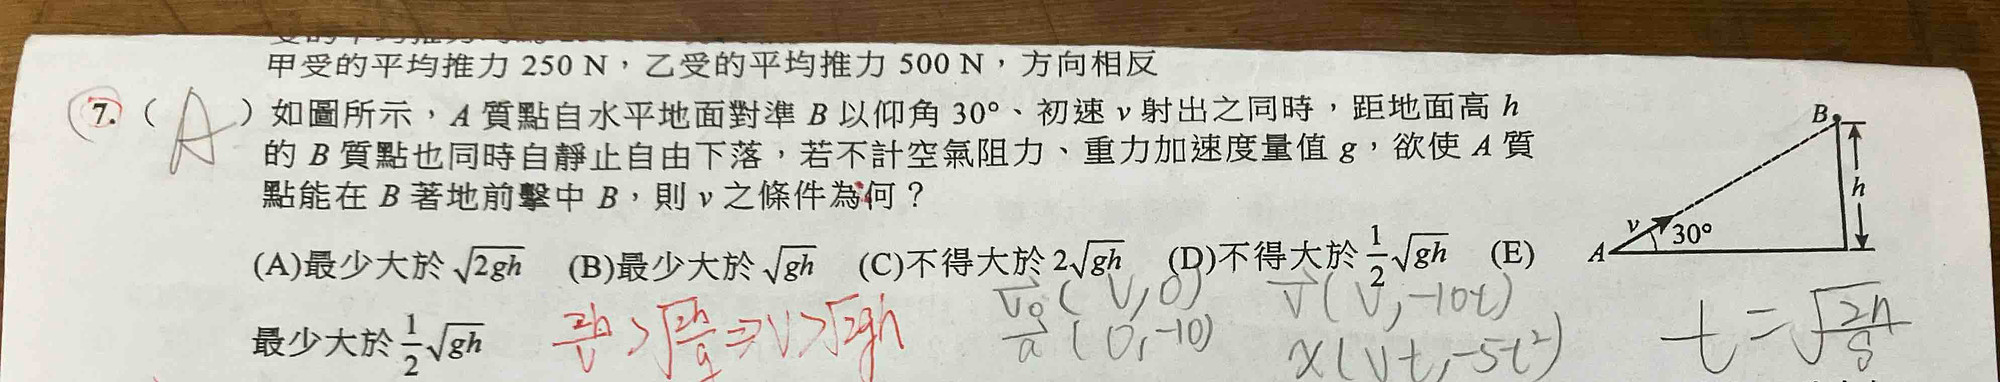 甲受的平均推力 250 N，乙受的平均推力 500 N，方向相反
7. （ A ）如圖所示，A 質點自水平地面對準 B 以仰角 30°、初速 v 射出之同時，距地面高 h
的 B 質點也同時自靜止自由下落，若不計空氣阻力、重力加速度量值 g，欲使 A 質
點能在 B 著地前擊中 B，則 v 之條件為何？
(A)最少大於 √2gh (B)最少大於 √gh (C)不得大於 2√gh (D)不得大於 1/2√gh (E)
最少大於 1/2√gh
B
h
v
30°
A
2h/v > √2h/g ⇒ v > √2gh
v₀ (V, 0)
a (0, -10)
v (V, -10t)
x (Vt, -5t²)
t = √2h/g